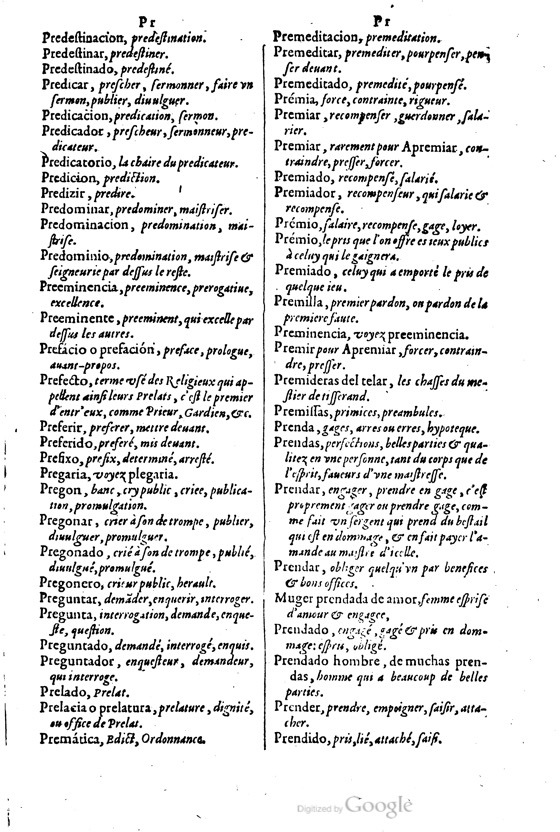 Pr
Predeſtinacion, predeſtination.
Predeſtinar, predeſtiner.
Predeſtinado, predeſtiné.
Predicar, preſcher, ſermonner, faire vn
ſermon, publier, diuulguer.
Predicacion, predication, ſermon.
Predicador, preſcheur, ſermonneur, pre-
dicateur.
Predicatorio, la chaire du predicateur.
Predicion, prediction.
Predizir, predire.
Predominar, predominer, maiſtriſer.
Predominacion, predomination, mai-
ſtriſe.
Predominio, predomination, maiſtriſe &
ſeigneurie par deſſus le reſte.
Preeminencia, preeminence, prerogatiue,
excellence.
Preeminente, preeminent, qui excelle par
deſſus les autres.
Prefacio o prefación, preface, prologue,
auant-propos.
Prefecto, terme vſé des Religieux qui ap-
pellent ainſi leurs Prelats, c'eſt le premier
d'entr'eux, comme Prieur, Gardien, &c.
Preferir, preferer, mettre deuant.
Preferido, preferé, mis deuant.
Prefixo, prefix, determiné, arreſté.
Pregaria, voyez plegaria.
Pregon, banc, cry public, criee, publica-
tion, promulgation.
Pregonar, crier à ſon de trompe, publier,
diuulguer, promulguer.
Pregonado, crié à ſon de trompe, publié,
diuulgué, promulgué.
Pregonero, crieur public, herault.
Preguntar, demãder, enquerir, interroger.
Pregunta, interrogation, demande, enque-
ſte, queſtion.
Preguntado, demandé, interrogé, enquis.
Preguntador, enqueſteur, demandeur,
qui interroge.
Prelado, Prelat.
Prelacia o prelatura, prelature, dignité,
ou office de Prelat.
Premática, Edict, Ordonnance.
Pr
Premeditacion, premeditation.
Premeditar, premediter, pourpenſer, pen-
ſer deuant.
Premeditado, premedité, pourpenſé.
Prémia, force, contrainte, rigueur.
Premiar, recompenſer, guerdonner, ſala-
rier.
Premiar, rarement pour Apremiar, con-
traindre, preſſer, forcer.
Premiado, recompenſé, ſalarié.
Premiador, recompenſeur, qui ſalarie &
recompenſe.
Prémio, ſalaire, recompenſe, gage, loyer.
Prémio, le pris que l'on offre es ieux publics
à celuy qui le gaignera.
Premiado, celuy qui a emporté le pris de
quelque ieu.
Premilla, premier pardon, ou pardon de la
premiere faute.
Preminencia, voyez preeminencia.
Premir pour Apremiar, forcer, contrain-
dre, preſſer.
Premideras del telar, les chaſſes du me-
ſtier de tiſſerand.
Premiſſas, primices, preambules.
Prenda, gages, arres ou erres, hypoteque.
Prendas, perfections, belles parties & qua-
litez en vne perſonne, tant du corps que de
l'eſprit, faueurs d'vne maiſtreſſe.
Prendar, engager, prendre en gage, c'eſt
proprement gager ou prendre gage, com-
me fait vn ſergent qui prend du beſtail
qui eſt en dommage, & en fait payer l'a-
mande au maiſtre d'icelle.
Prendar, obliger quelqu'vn par benefices
& bons offices.
Muger prendada de amor, femme eſpriſe
d'amour & engagee,
Prendado, engagé, gagé & pris en dom-
mage: eſpris, obligé.
Prendado hombre, de muchas pren-
das, homme qui a beaucoup de belles
parties.
Prender, prendre, empoigner, ſaiſir, atta-
cher.
Prendido, pris, lié, attaché, ſaiſi.
Digitized by Google